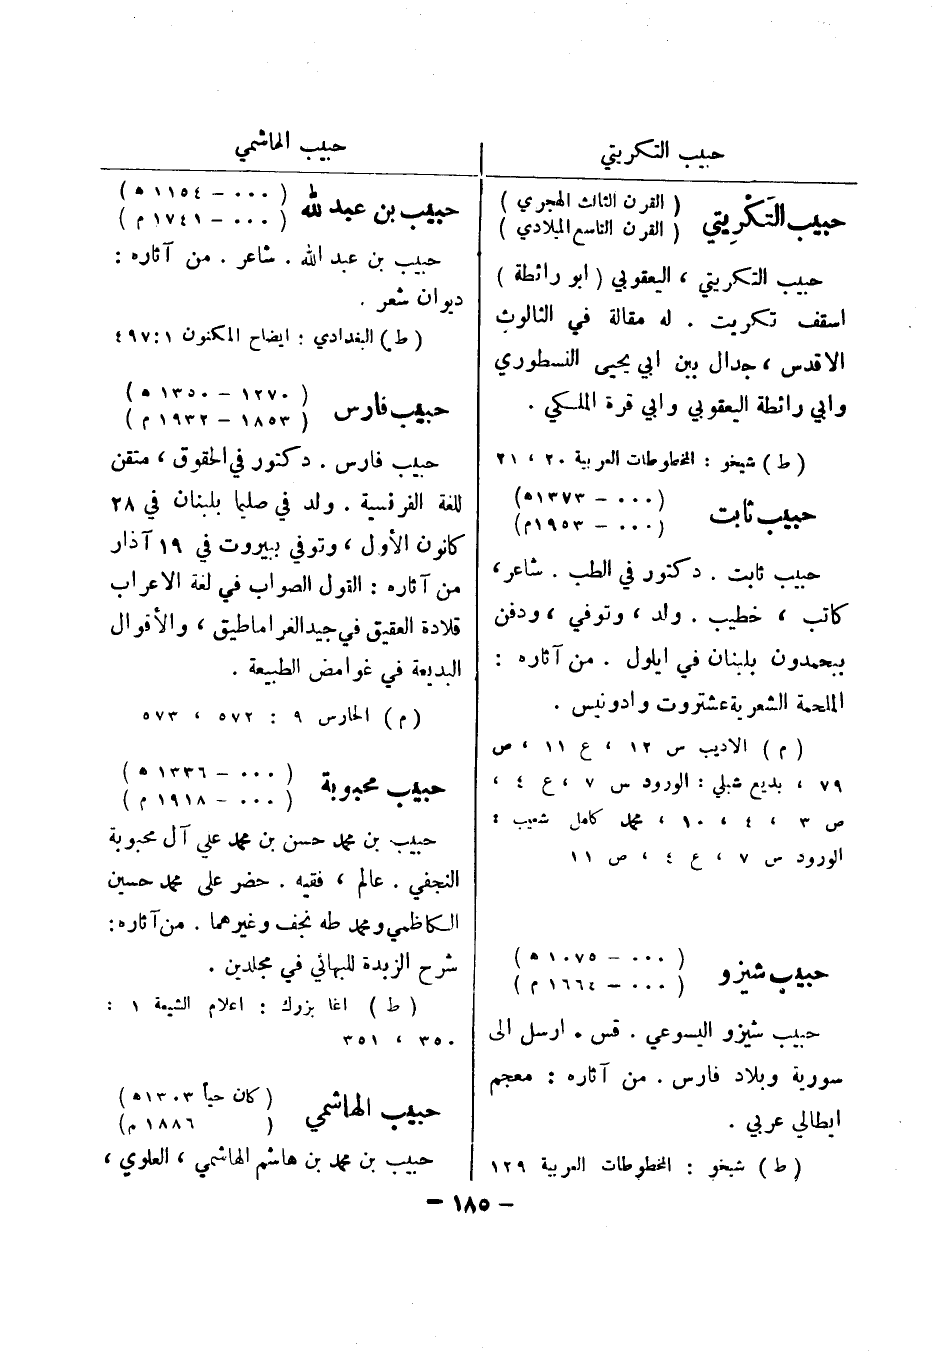 حبيب التكريتي
حبيب الهاشمي
حبيب التَكْرِيتي
( القرن الثالث الهجري )
( القرن التاسع الميلادي )
حبيب التكريتي ، اليعقوبي ( ابو رائطة )
اسقف تكريت . له مقالة في الثالوث
الاقدس ، جدال بين ابي يحيى النسطوري
وابي رائطة اليعقوبي وابي قرة الملكي .
( ط ) شيخو : المخطوطات العربية ٢٠ ، ٢١
حبيب ثابت
(٠٠٠ - ١٣٧٣ ه)
(٠٠٠ - ١٩٥٣ م)
حبيب ثابت . دكتور في الطب . شاعر ،
كاتب ، خطيب . ولد ، وتوفي ، ودفن
ببحمدون بلبنان في ايلول . من آثاره :
الملحمة الشعرية عشتروت وادونيس .
( م ) الاديب س ١٢ ، ع ١١ ، ص
٧٩ ، بديع شبلي : الورود س ٧ ، ع ٤ ،
ص ٣ ، ٤ ، ١٠ ، محمد كامل شعيب :
الورود س ٧ ، ع ٤ ، ص ١١
حبيب شيزو
( ٠٠٠ - ١٠٧٥ ه )
( ٠٠٠ - ١٦٦٤ م )
حبيب شيزو اليسوعي . قس . ارسل الى
سورية وبلاد فارس . من آثاره : معجم
ايطالي عربي .
( ط ) شيخو : المخطوطات العربية ١٢٩
حبيب بن عبد الله
( ٠٠٠ - ١١٥٤ ه )
( ٠٠٠ - ١٧٤١ م )
حبيب بن عبد الله . شاعر . من آثاره :
ديوان شعر .
( ط ) البغدادي : ايضاح المكنون ١ : ٤٩٧
حبيب فارس
( ١٢٧٠ - ١٣٥٠ ه )
( ١٨٥٣ - ١٩٣٢ م )
حبيب فارس . دكتور في الحقوق ، متقن
للغة الفرنسية . ولد في صليما بلبنان في ٢٨
كانون الأول ، وتوفي ببيروت في ١٩ آذار
من آثاره : القول الصواب في لغة الاعراب
قلادة العقيق في جيد الغراماطيق ، والأقوال
البديعة في غوامض الطبيعة .
( م ) الحارس ٩ : ٥٧٢ ، ٥٧٣
حبيب محبوبة
( ٠٠٠ - ١٣٣٦ ه )
( ٠٠٠ - ١٩١٨ م )
حبيب بن محمد حسن بن محمد علي آل محبوبة
النجفي . عالم ، فقيه . حضر على محمد حسين
الكاظمي ومحمد طه نجف وغيرهما . من آثاره :
شرح الزبدة للبهائي في مجلدين .
( ط ) اغا بزرك : اعلام الشيعة ١ :
٣٥٠ ، ٣٥١
حبيب الهاشمي
( كان حياً ١٣٠٣ ه )
( ١٨٨٦ م )
حبيب بن محمد بن هاشم الهاشمي ، العلوي ،
- ١٨٥ -